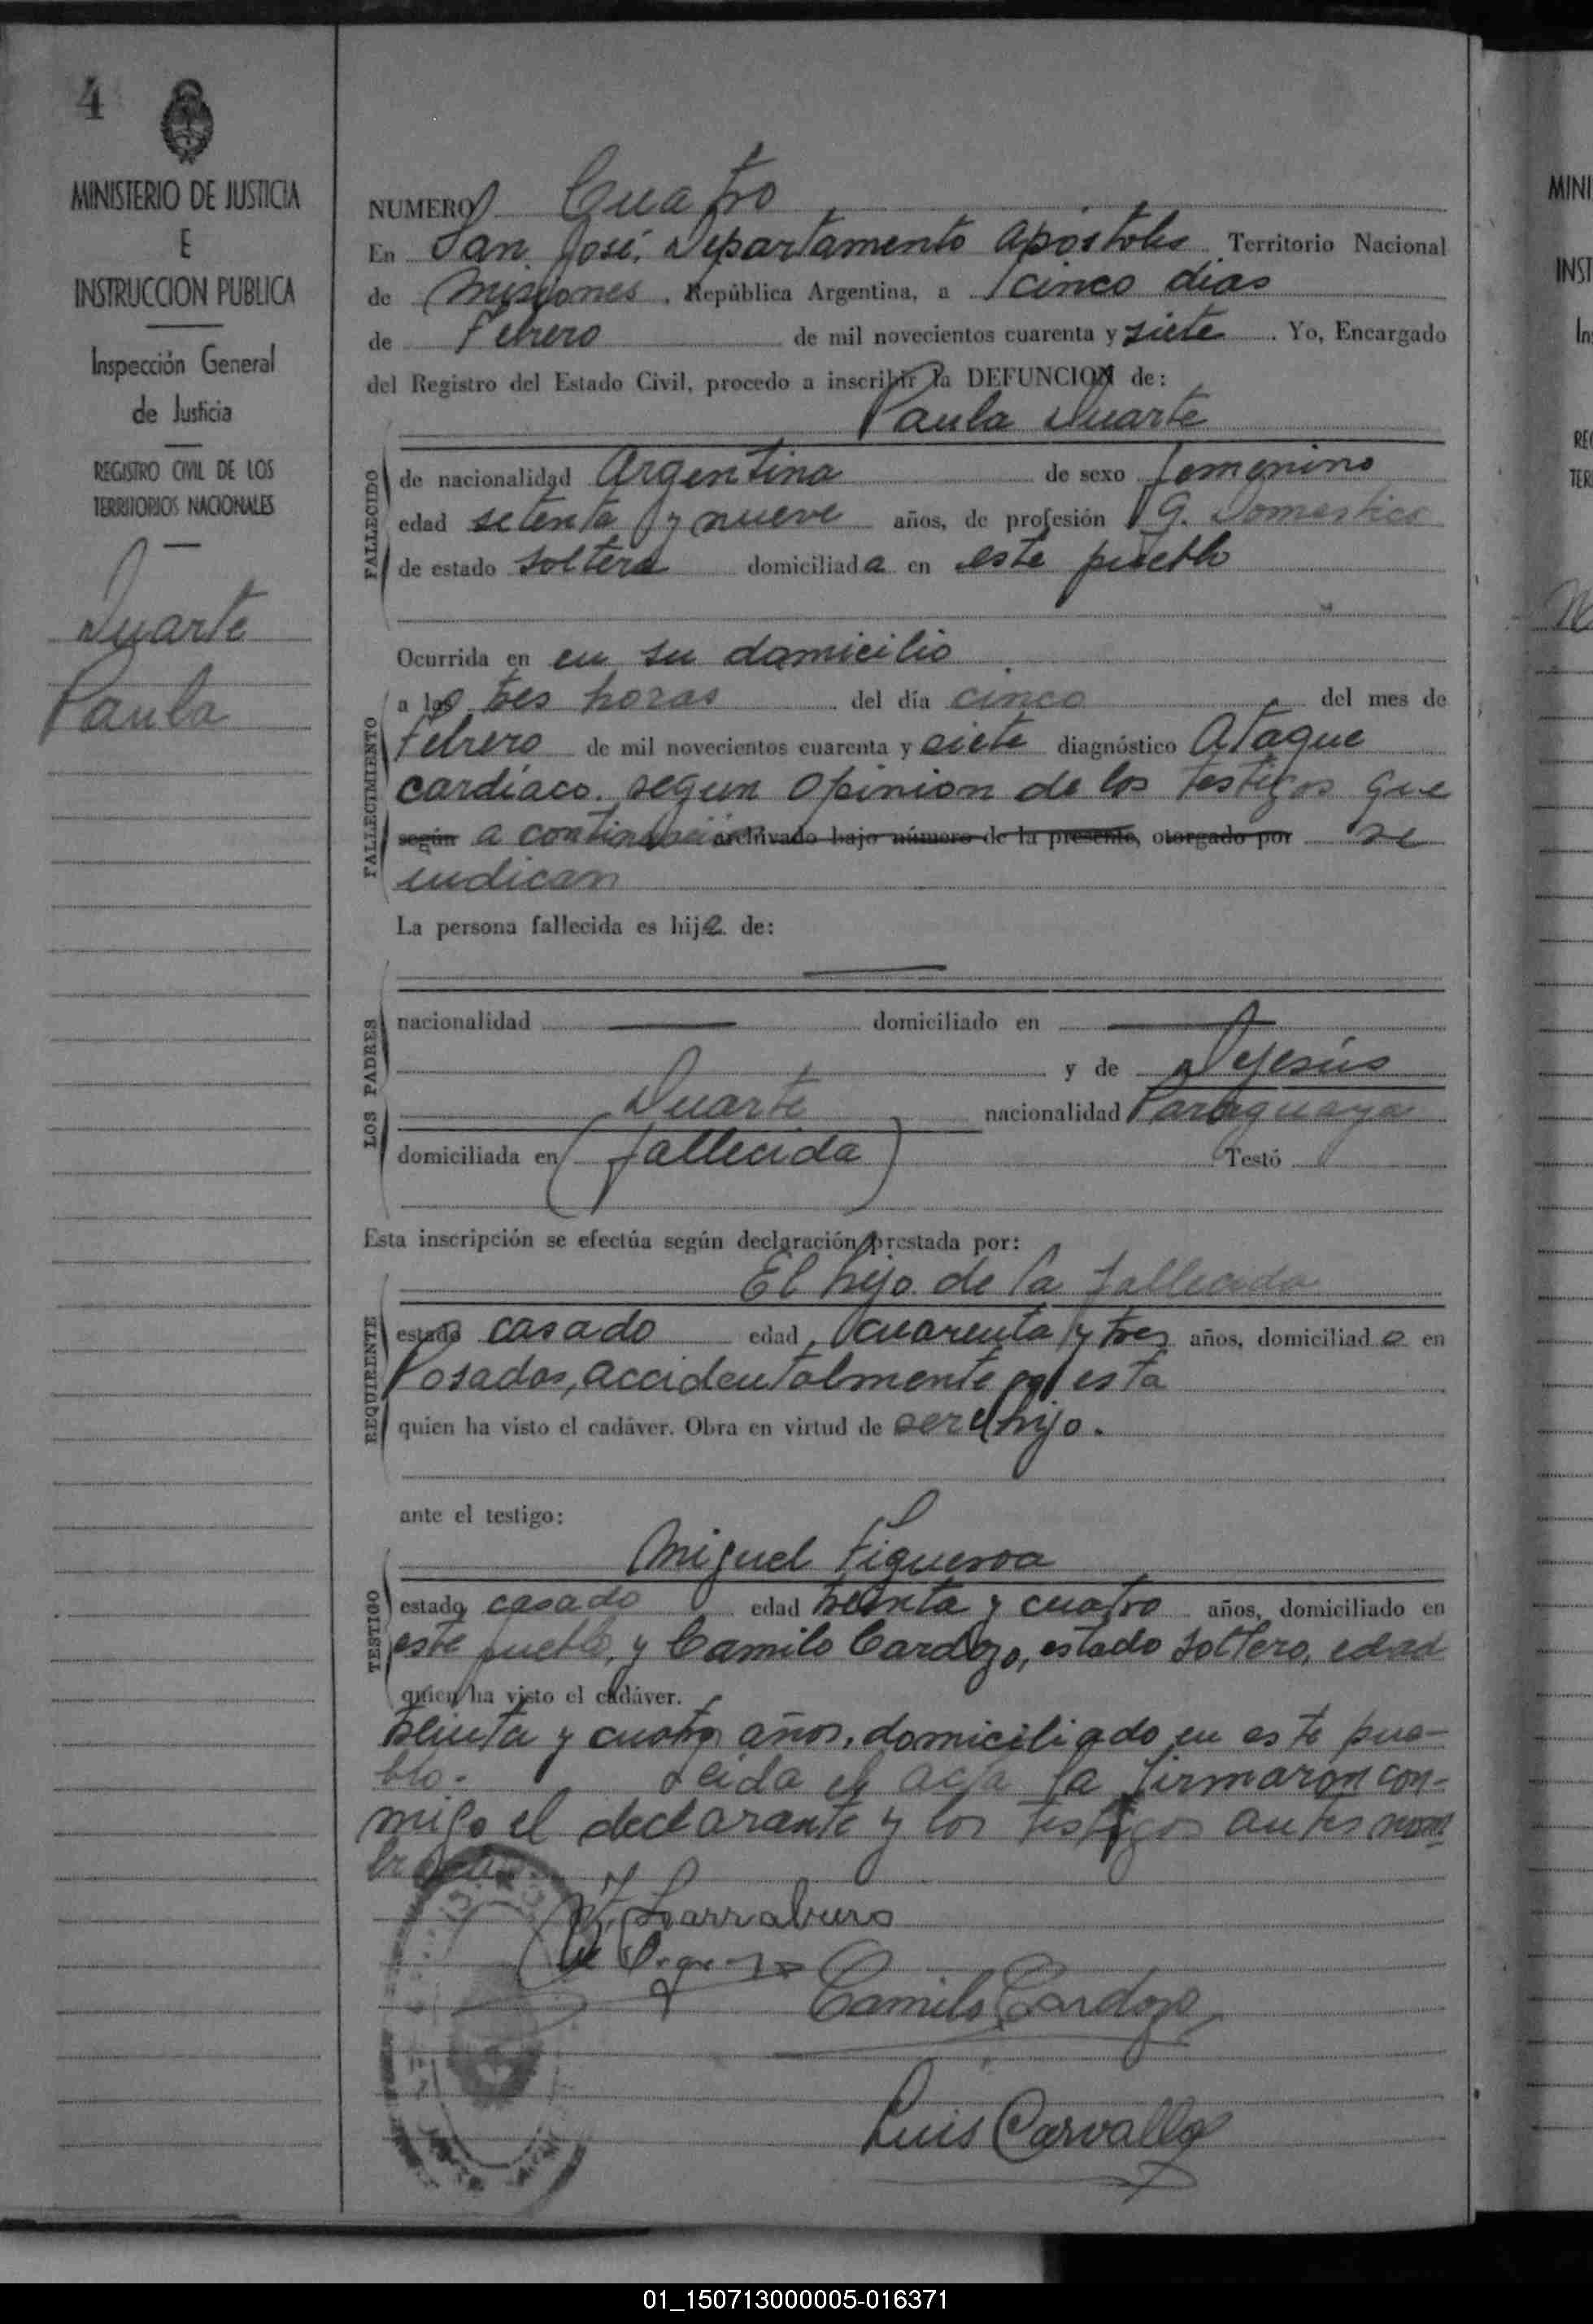 4
MINISTERIO DE JUSTICIA
E
INSTRUCCION PUBLICA
Inspección General
de Justicia
REGISTRO CIVIL DE LOS
TERRITORIOS NACIONALES
Duarte
Paula
NUMERO Cuatro
En San José, Departamento Apóstoles Territorio Nacional
de Misiones, República Argentina, a cinco dias
de Febrero de mil novecientos cuarenta y siete. Yo, Encargado
del Registro del Estado Civil, procedo a inscribir la DEFUNCION de:
Paula Duarte
FALLECIDO
de nacionalidad Argentina de sexo femenino
edad setenta y nueve años, de profesión Q. Domestico
de estado soltera domiciliada en este pueblo
Ocurrida en en su domicilio
FALLECIMIENTO
a las tres horas del día cinco del mes de
Febrero de mil novecientos cuarenta y siete diagnóstico Ataque
cardíaco. segun opinion de los testigos que
según a continuación archivado bajo número de la presente, otorgado por se
indican
La persona fallecida es hija de:
LOS PADRES
nacionalidad domiciliado en
y de Dejesús
Duarte nacionalidad Paraguaya
domiciliada en (fallecida) Testó
Esta inscripción se efectúa según declaración prestada por:
El hijo de la fallecida
REQUIRENTE
estado casado edad cuarenta y tres años, domiciliado en
Posadas, accidentalmente en esta
quien ha visto el cadáver. Obra en virtud de ser el hijo.
ante el testigo:
Miguel Figueroa
TESTIGO
estado casado edad treinta y cuatro años, domiciliado en
este pueblo, y Camilo Cardozo, estado soltero, edad
quien ha visto el cadáver.
treinta y cuatro años, domiciliado en este pue-
blo. Leida el acta la firmaron con-
migo el declarante y los testigos antes nom
brados.
Larraburo
Camilo Cardozo
Luis Carvallo
MINI
INST
In
RE
TER
01_150713000005-016371